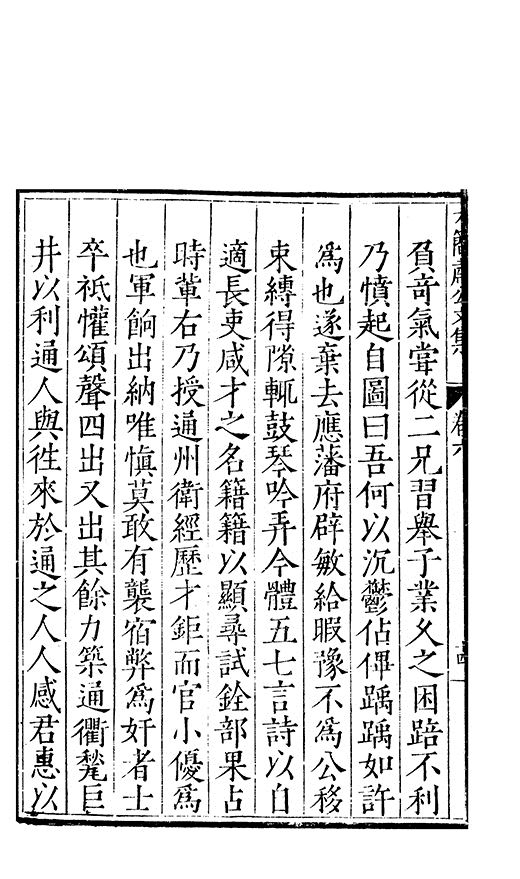 方簡肅公文集
卷六
負竒氣嘗從二兄習舉子業久之困踣不利
乃憤起自圖曰吾何以沉鬱佔僤踽踽如許
為也遂棄去應藩府辟敏給暇豫不為公移
束縳得隙輒鼓琴吟弄今體五七言詩以自
適長吏咸才之名籍籍以顯尋試銓部果占
時輩右乃授通州衛經歷才鉅而官小優為
也軍餉出納唯慎莫敢有襲宿弊為奸者士
卒祗懽頌聲四出又出其餘力築通衢甃巨
井以利通人與徃來於通之人人感君惠以